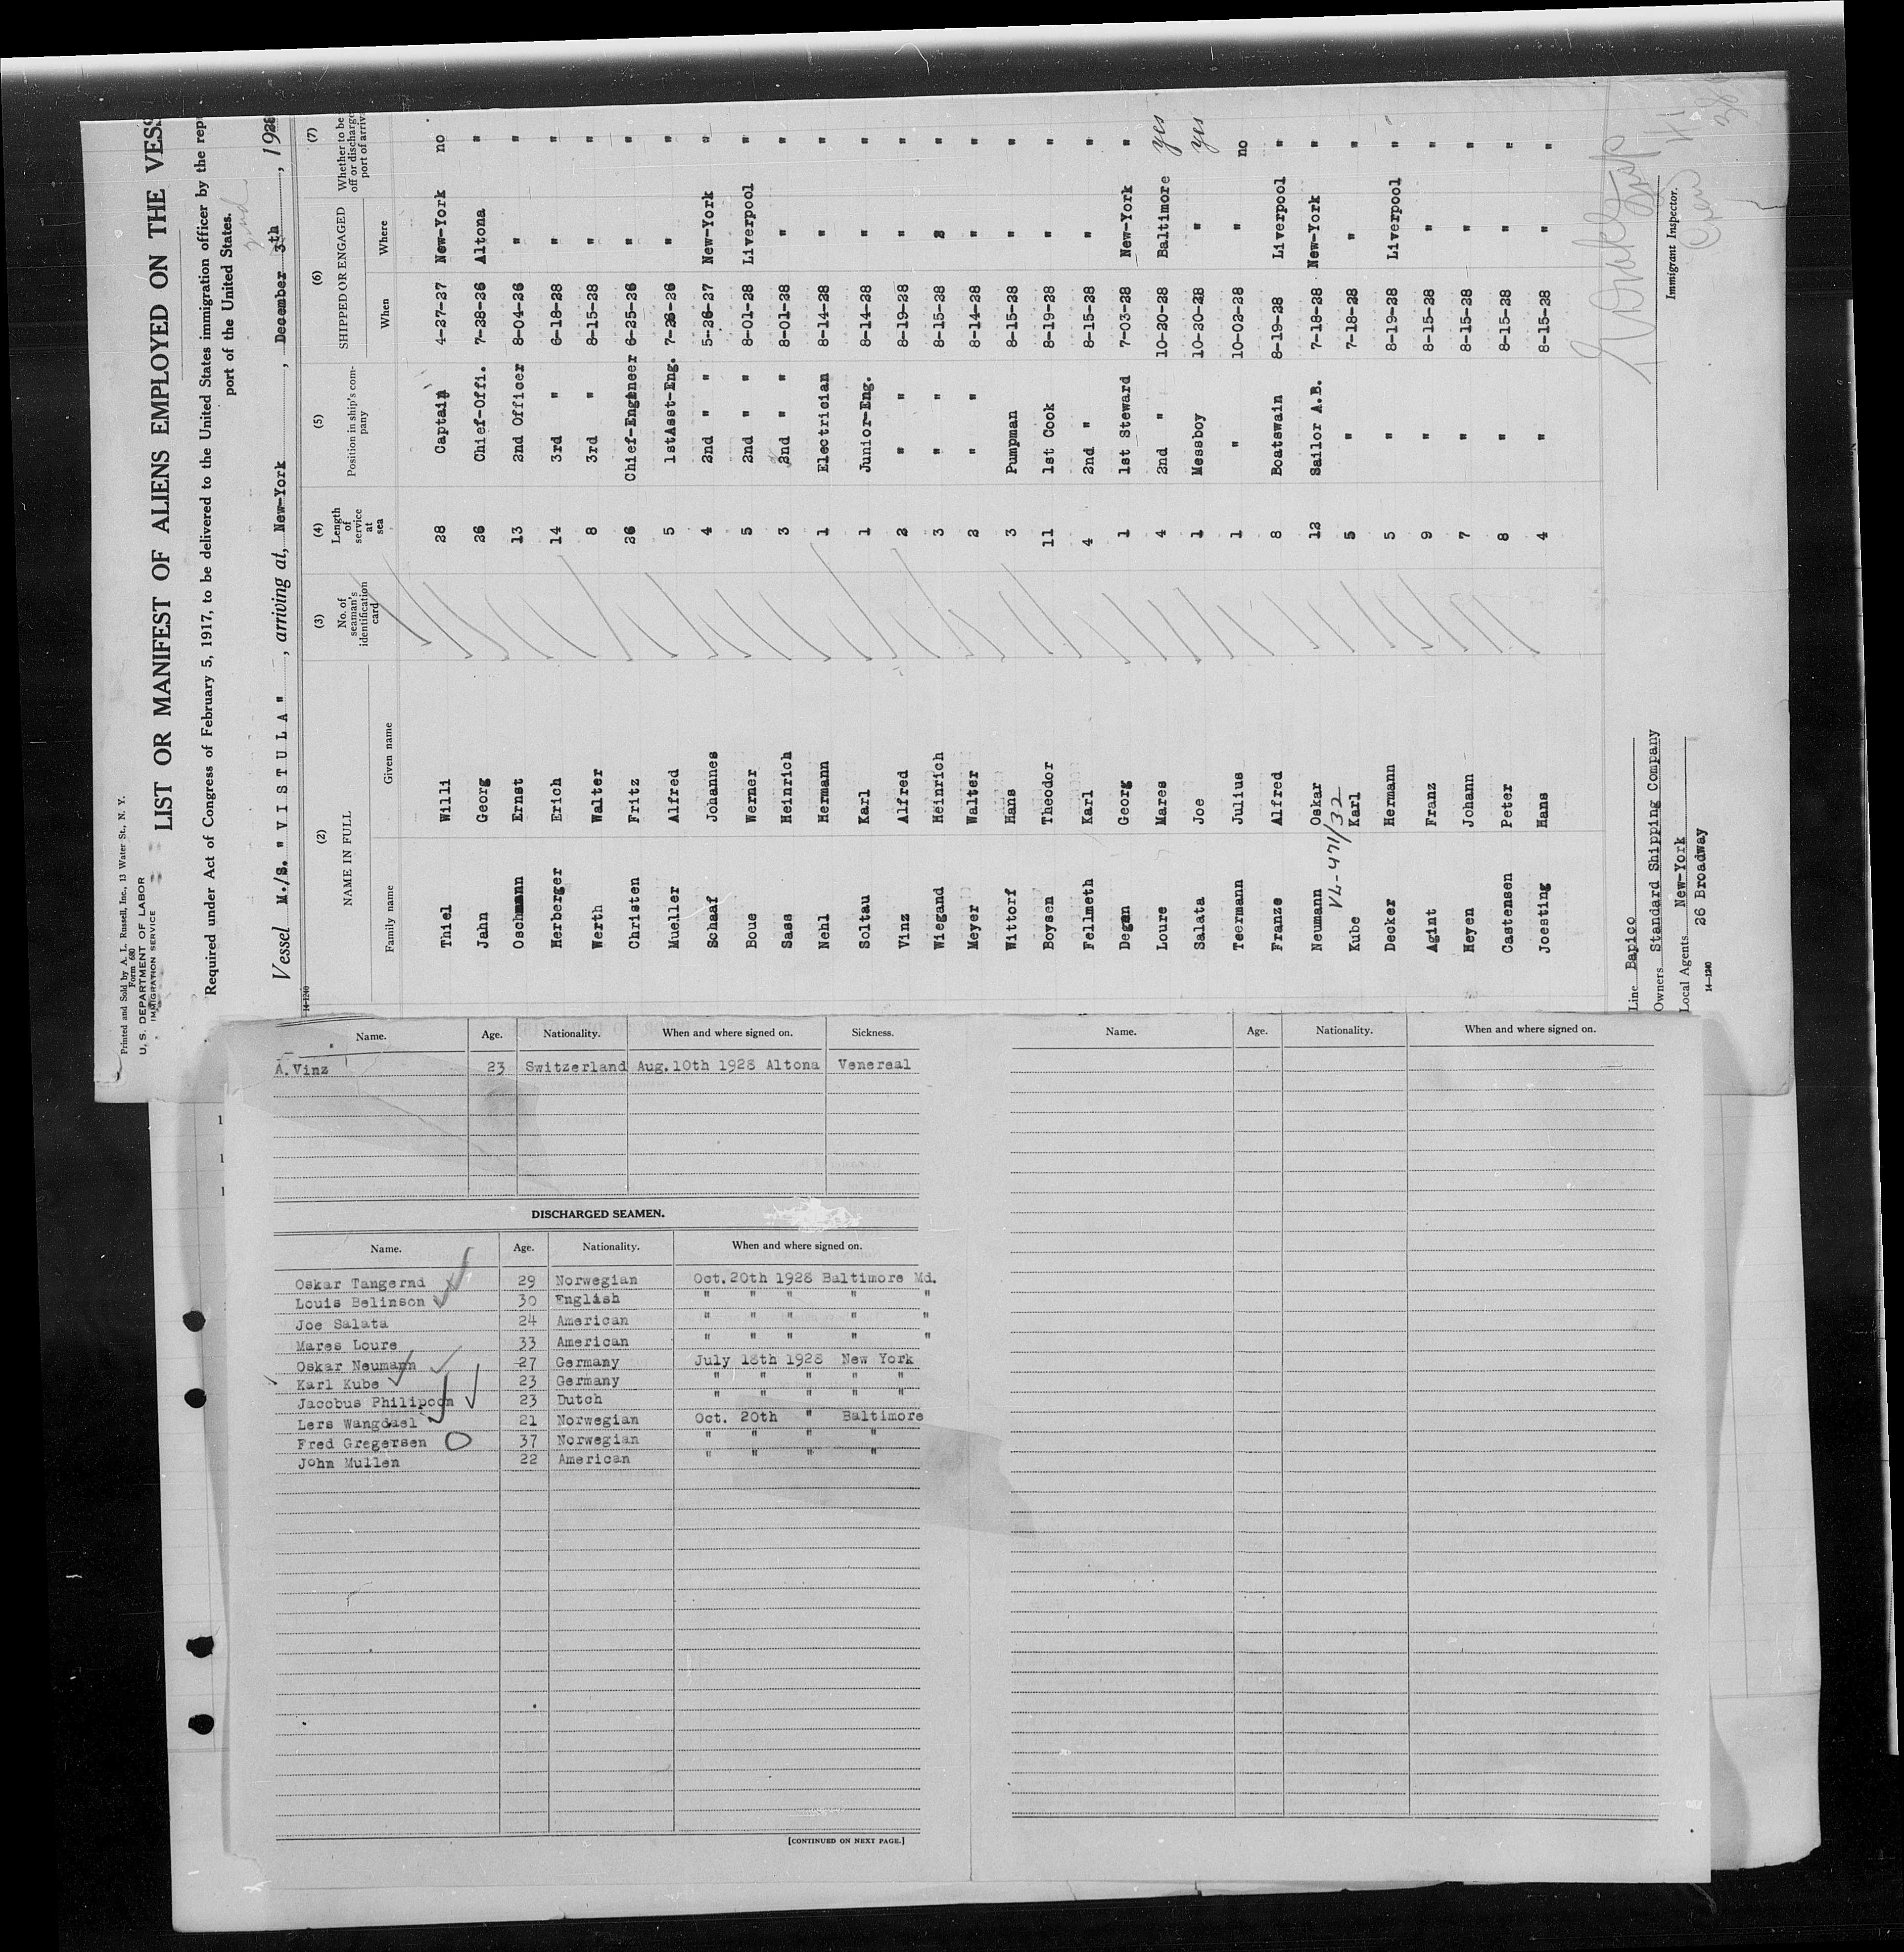 Printed and Sold by A. L. Russell, Inc., 13 Water St., N. Y.
Form 680
U. S. DEPARTMENT OF LABOR
IMMIGRATION SERVICE
LIST OR MANIFEST OF ALIENS EMPLOYED ON THE VESS
Required under Act of Congress of February 5, 1917, to be delivered to the United States immigration officer by the rep
port of the United States.
Vessel M./S. " V I S T U L A " , arriving at, New-York , December 3th , 1928
14-1240
(2) (3) (4) (5) (6) (7)
NAME IN FULL No. of seaman's identification card Length of service at sea Position in ship's company SHIPPED OR ENGAGED Whether to be off or discharge port of arriv
Family name Given name When Where
Thiel Willi 28 Captain 4-27-27 New-York no
Jahn Georg 26 Chief-Offi. 7-28-26 Altona "
Oschmann Ernst 13 2nd Officer 8-04-26 " "
Herberger Erich 14 3rd " 6-18-28 " "
Werth Walter 8 3rd " 8-15-28 " "
Christen Fritz 26 Chief-Engineer 6-25-26 " "
Mueller Alfred 5 1stAsst-Eng. 7-26-26 " "
Schaaf Johannes 4 2nd " " 5-26-27 New-York "
Boue Werner 5 2nd " " 8-01-28 Liverpool "
Sass Heinrich 3 2nd " " 8-01-28 " "
Nehl Hermann 1 Electrician 8-14-28 " "
Soltau Karl 1 Junior-Eng. 8-14-28 " "
Vinz Alfred 2 " " 8-19-28 " "
Wiegand Heinrich 3 " " 8-15-28 " "
Meyer Walter 2 " " 8-14-28 " "
Wittorf Hans 3 Pumpman 8-15-28 " "
Boysen Theodor 11 1st Cook 8-19-28 " "
Fellmeth Karl 4 2nd " 8-15-28 " "
Degen Georg 1 1st Steward 7-03-28 New-York "
Loure Mares 4 2nd " 10-20-28 Baltimore yes
Salata Joe 1 Messboy 10-20-28 " yes
Teermann Julius 1 " 10-02-28 " no
Franze Alfred 8 Boatswain 8-19-28 Liverpool "
Neumann Oskar 12 Sailor A.B. 7-18-28 New-York "
VL-471/32
Kube Karl 5 " 7-18-28 " "
Decker Hermann 5 " 8-19-28 Liverpool "
Agint Franz 9 " 8-15-28 " "
Heyen Johann 7 " 8-15-28 " "
Castensen Peter 8 " 8-15-28 " "
Joesting Hans 4 " 8-15-28 " "
Line Bapico
Owners Standard Shipping Company
Local Agents New-York
26 Broadway
14-1240
Immigrant Inspector.
Name. Age. Nationality. When and where signed on. Sickness.
A. Vinz 23 Switzerland Aug. 10th 1928 Altona Venereal
DISCHARGED SEAMEN.
Name. Age. Nationality. When and where signed on.
Oskar Tangernd 29 Norwegian Oct. 20th 1928 Baltimore Md.
Louis Belinson 30 English " " " " "
Joe Salata 24 American " " " " "
Mares Loure 33 American " " " " "
Oskar Neumann 27 Germany July 18th 1928 New York
Karl Kube 23 Germany " " " " "
Jacobus Philipoon 23 Dutch " " " " "
Lers Wangdael 21 Norwegian Oct. 20th " Baltimore
Fred Gregersen 37 Norwegian " " " "
John Mullen 22 American " " " "
[CONTINUED ON NEXT PAGE.]
Name. Age. Nationality. When and where signed on.